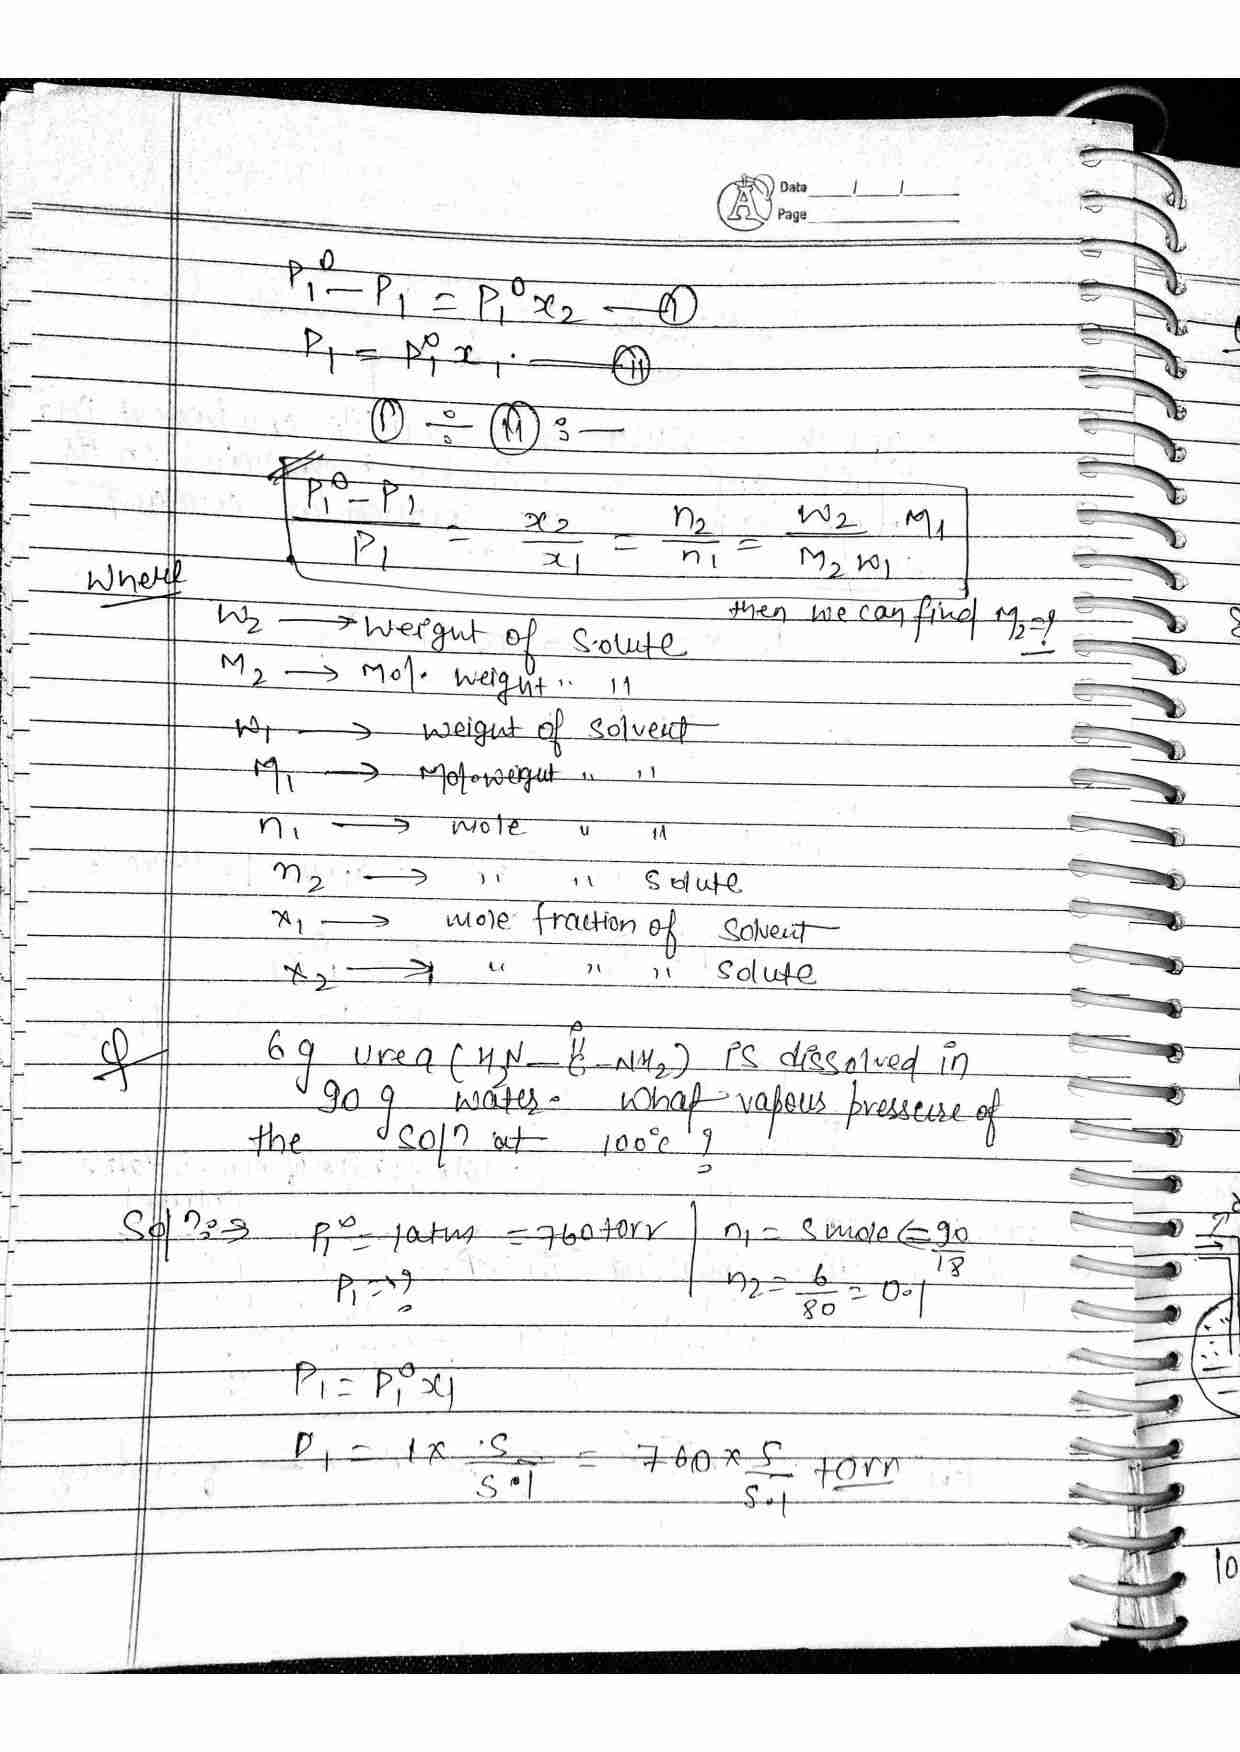 Data / /
Page
P₁⁰ - P₁ = P₁⁰ x₂ — (I)
P₁ = P₁⁰ x₁ — (II)
(I) ÷ (II) :—
(P₁⁰ - P₁)/P₁ = x₂/x₁ = n₂/n₁ = (w₂ M₁)/(M₂ w₁)
then we can find M₂=?
Where
W₂ → weight of solute
M₂ → Mol. weight " "
W₁ → weight of solvent
M₁ → Mol. weight " "
n₁ → mole " "
n₂ → " " solute
x₁ → mole fraction of solvent
x₂ → " " " solute
6 g urea (H₂N-C(=O)-NH₂) is dissolved in
90 g water. What vapous pressure of
the solⁿ at 100°C ?
Solⁿ:→ P₁⁰ = 1atm = 760 torr | n₁ = 5 mole = 90/18
P₁ = ? | n₂ = 6/80 = 0.1
P₁ = P₁⁰ x₁
P₁ = 1 × 5/5.1 = 760 × 5/5.1 torr
10